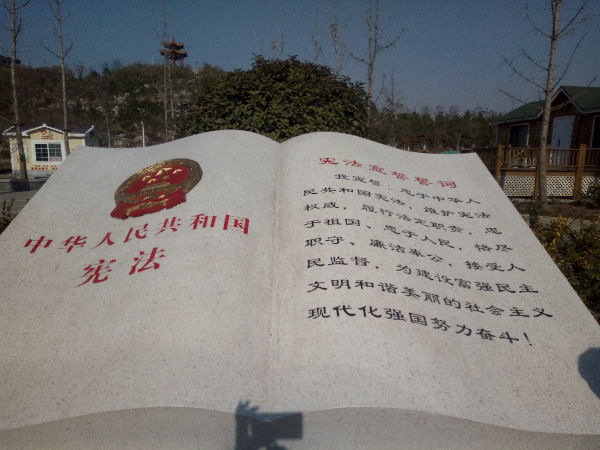 中华人民共和国
宪法
宪法宣誓誓词
我宣誓：忠于中华人
民共和国宪法，维护宪法
权威，履行法定职责，忠
于祖国、忠于人民，恪尽
职守、廉洁奉公，接受人
民监督，为建设富强民主
文明和谐美丽的社会主义
现代化强国努力奋斗！